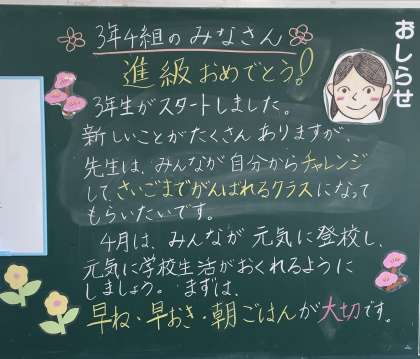 おしらせ
3年4組のみなさん
進級おめでとう!
3年生がスタートしました。
新しいことがたくさんありますが、
先生は、みんなが自分からチャレンジ
して、さいごまでがんばれるクラスになって
もらいたいです。
4月は、みんなが元気に登校し、
元気に学校生活がおくれるように
しましょう。まずは、
早ね・早おき・朝ごはんが大切です。